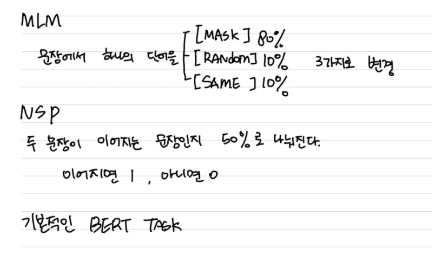 MLM
[MASK] 80%
문장에서 하나의 단어을 [RANdom] 10% 3가지로 변경
[SAME ] 10%
NSP
두 문장이 이어지는 문장인지 50%로 나눠진다.
이어지면 1 , 아니면 0
기본적인 BERT TASK